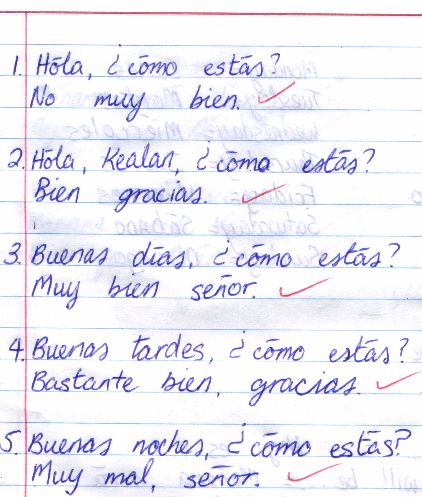 1. Hóla, ¿cómo estás?
No muy bien.
2. Hóla, Kealan, ¿cómo estás?
Bien gracias.
3. Buenas días, ¿cómo estás?
Muy bien señor.
4. Buenas tardes, ¿cómo estás?
Bastante bien, gracias.
5. Buenas noches, ¿cómo estás?
Muy mal, señor.